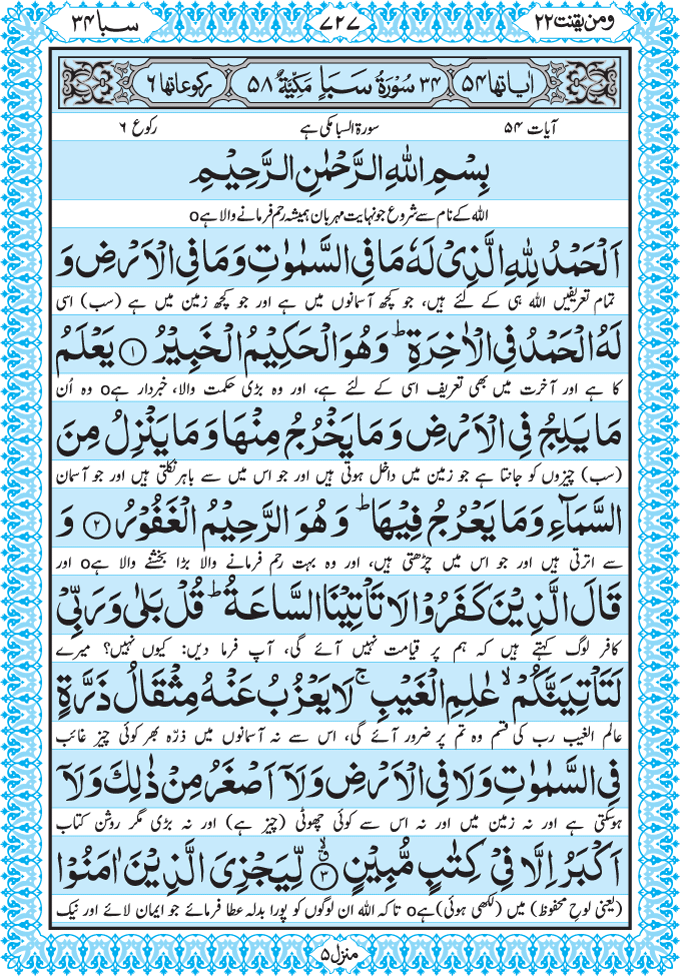 ومن یقنت ۲۲ ۷۲۷ سبا ۳۴
اٰیاتھا ۵۴ ۳۴ سُوْرَۃُ سَبَاٍ مَکِّیَّۃٌ ۵۸ رکوعاتھا ۶
آیات ۵۴ سورۃ السبا مکی ہے رکوع ۶
بِسْمِ اللّٰهِ الرَّحْمٰنِ الرَّحِيْمِ
اللہ کے نام سے شروع جو نہایت مہربان ہمیشہ رحم فرمانے والا ہےo
اَلْحَمْدُ لِلّٰهِ الَّذِيْ لَهٗ مَا فِي السَّمٰوٰتِ وَمَا فِي الْاَرْضِ وَ
تمام تعریفیں اللہ ہی کے لئے ہیں، جو کچھ آسمانوں میں ہے اور جو کچھ زمین میں ہے (سب) اسی
لَهُ الْحَمْدُ فِي الْاٰخِرَةِ ؕ وَهُوَ الْحَكِيْمُ الْخَبِيْرُ ﴿۱﴾ يَعْلَمُ
کا ہے اور آخرت میں بھی تعریف اسی کے لئے ہے، اور وہ بڑی حکمت والا، خبردار ہےo وہ اُن
مَا يَلِجُ فِي الْاَرْضِ وَمَا يَخْرُجُ مِنْهَا وَمَا يَنْزِلُ مِنَ
(سب) چیزوں کو جانتا ہے جو زمین میں داخل ہوتی ہیں اور جو اس میں سے باہر نکلتی ہیں اور جو آسمان
السَّمَآءِ وَمَا يَعْرُجُ فِيْهَا ؕ وَهُوَ الرَّحِيْمُ الْغَفُوْرُ ﴿۲﴾ وَ
سے اترتی ہیں اور جو اس میں چڑھتی ہیں، اور وہ بہت رحم فرمانے والا بڑا بخشنے والا ہےo اور
قَالَ الَّذِيْنَ كَفَرُوْا لَا تَاْتِيْنَا السَّاعَةُ ؕ قُلْ بَلٰى وَرَبِّيْ
کافر لوگ کہتے ہیں کہ ہم پر قیامت نہیں آئے گی، آپ فرما دیں: کیوں نہیں؟ میرے
لَتَاْتِيَنَّكُمْ ۙ عٰلِمِ الْغَيْبِ ۚ لَا يَعْزُبُ عَنْهُ مِثْقَالُ ذَرَّةٍ
عالم الغیب رب کی قسم وہ تم پر ضرور آئے گی، اس سے نہ آسمانوں میں ذرّہ بھر کوئی چیز غائب
فِي السَّمٰوٰتِ وَلَا فِي الْاَرْضِ وَلَاۤ اَصْغَرُ مِنْ ذٰلِكَ وَلَاۤ
ہوسکتی ہے اور نہ زمین میں اور نہ اس سے کوئی چھوٹی (چیز ہے) اور نہ بڑی مگر روشن کتاب
اَكْبَرُ اِلَّا فِيْ كِتٰبٍ مُّبِيْنٍ ﴿۳﴾ۙ لِّيَجْزِيَ الَّذِيْنَ اٰمَنُوْا
(یعنی لوح محفوظ) میں (لکھی ہوئی) ہےo تاکہ اللہ ان لوگوں کو پورا بدلہ عطا فرمائے جو ایمان لائے اور نیک
منزل ۵